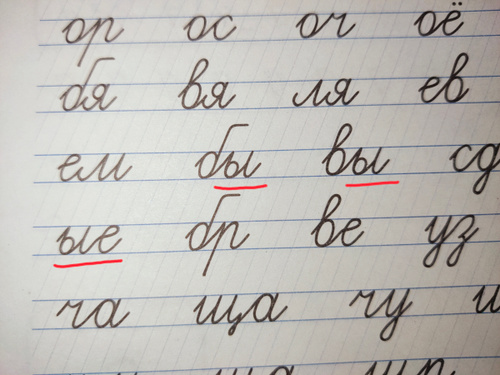 ор ос оч оё
бя вя ля ев
ем бы вы сд
ые бр ве уз
ча ща чу